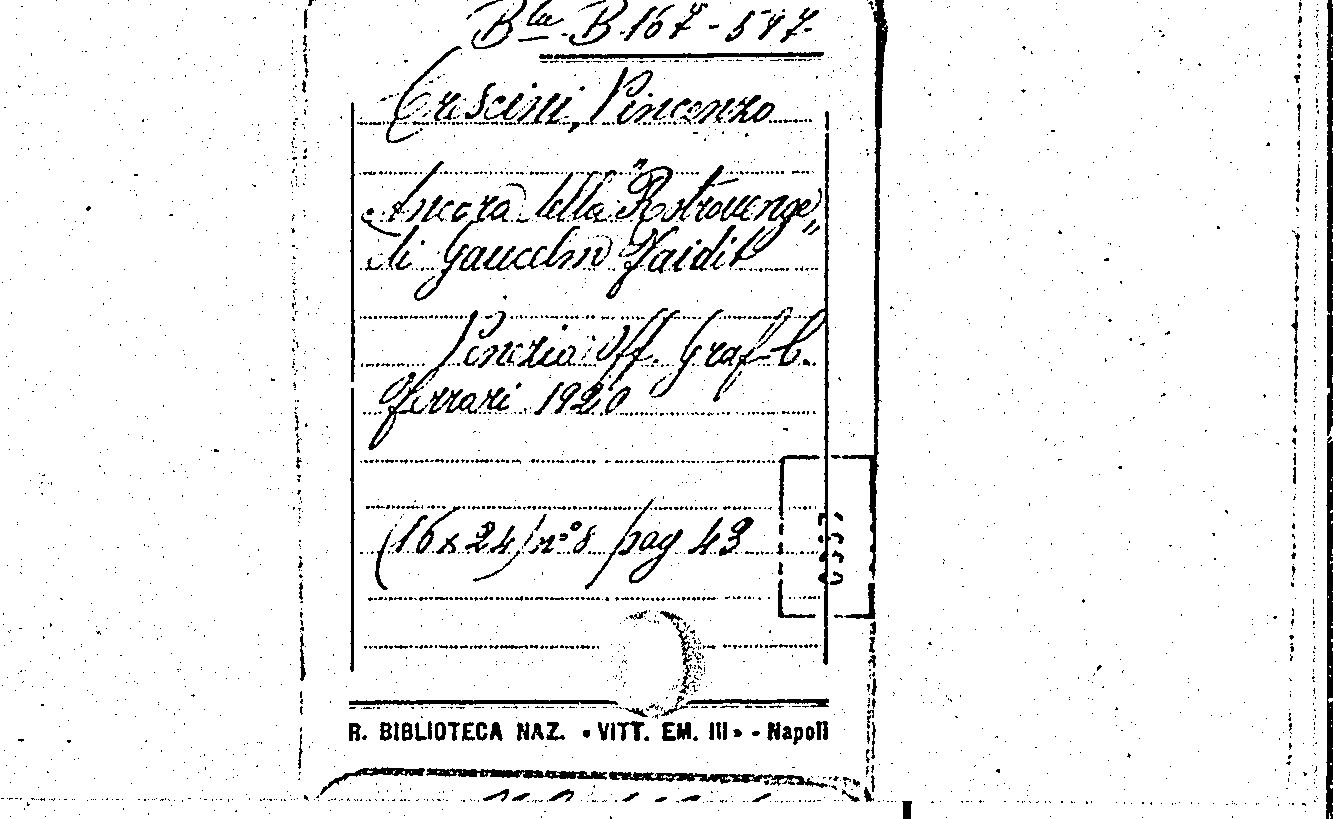 Bta B. 167-547.
Crescini, Vincenzo
Ancora della "Rotrouenge"
di Gaucelm Faidit
Venezia Off. Graf. C.
Ferrari 1920
(16x24) n° 8 pag 43
R. BIBLIOTECA NAZ. «VITT. EM. III» - Napoli